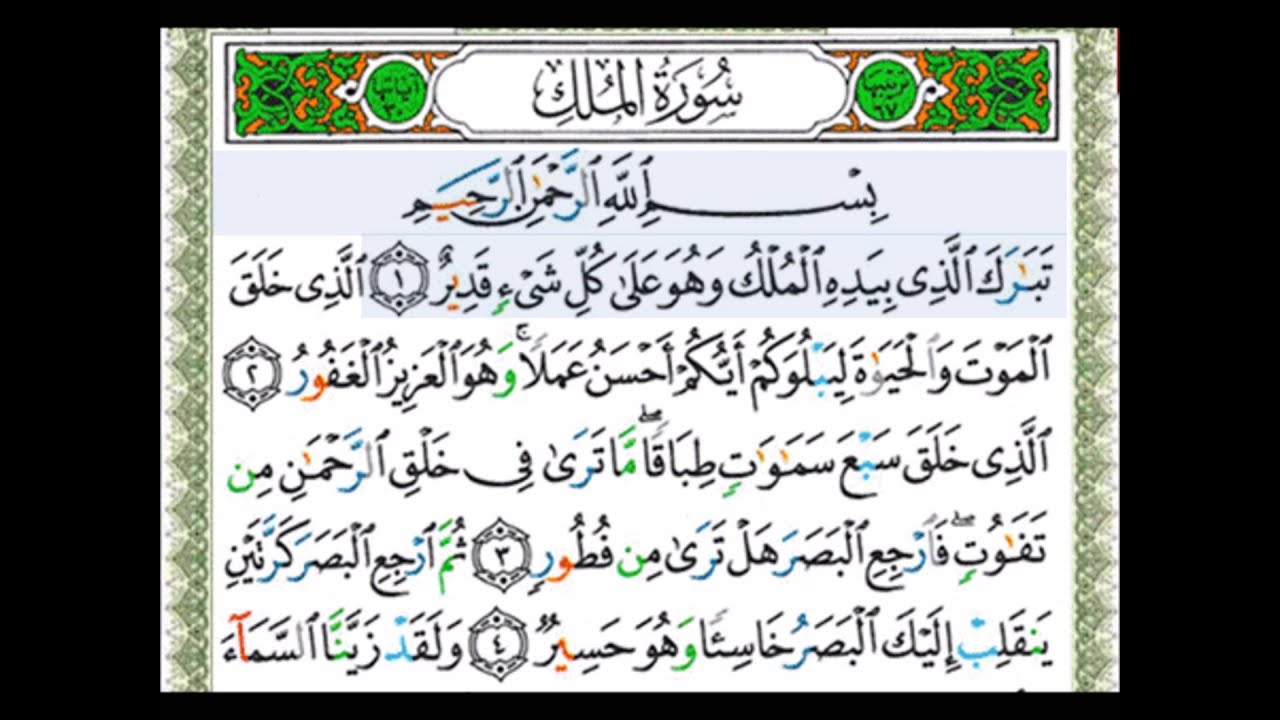 سُورَةُ الْمُلْكِ
ترتيبها ٦٧
آياتها ٣٠
بِسْمِ ٱللَّهِ ٱلرَّحْمَٰنِ ٱلرَّحِيمِ
تَبَٰرَكَ ٱلَّذِى بِيَدِهِ ٱلْمُلْكُ وَهُوَ عَلَىٰ كُلِّ شَىْءٍ قَدِيرٌ ١ ٱلَّذِى خَلَقَ
ٱلْمَوْتَ وَٱلْحَيَوٰةَ لِيَبْلُوَكُمْ أَيُّكُمْ أَحْسَنُ عَمَلًا ۚ وَهُوَ ٱلْعَزِيزُ ٱلْغَفُورُ ٢
ٱلَّذِى خَلَقَ سَبْعَ سَمَٰوَٰتٍ طِبَاقًا ۖ مَّا تَرَىٰ فِى خَلْقِ ٱلرَّحْمَٰنِ مِن
تَفَٰوُتٍ ۖ فَٱرْجِعِ ٱلْبَصَرَ هَلْ تَرَىٰ مِن فُطُورٍ ٣ ثُمَّ ٱرْجِعِ ٱلْبَصَرَ كَرَّتَيْنِ
يَنقَلِبْ إِلَيْكَ ٱلْبَصَرُ خَاسِئًا وَهُوَ حَسِيرٌ ٤ وَلَقَدْ زَيَّنَّا ٱلسَّمَآءَ